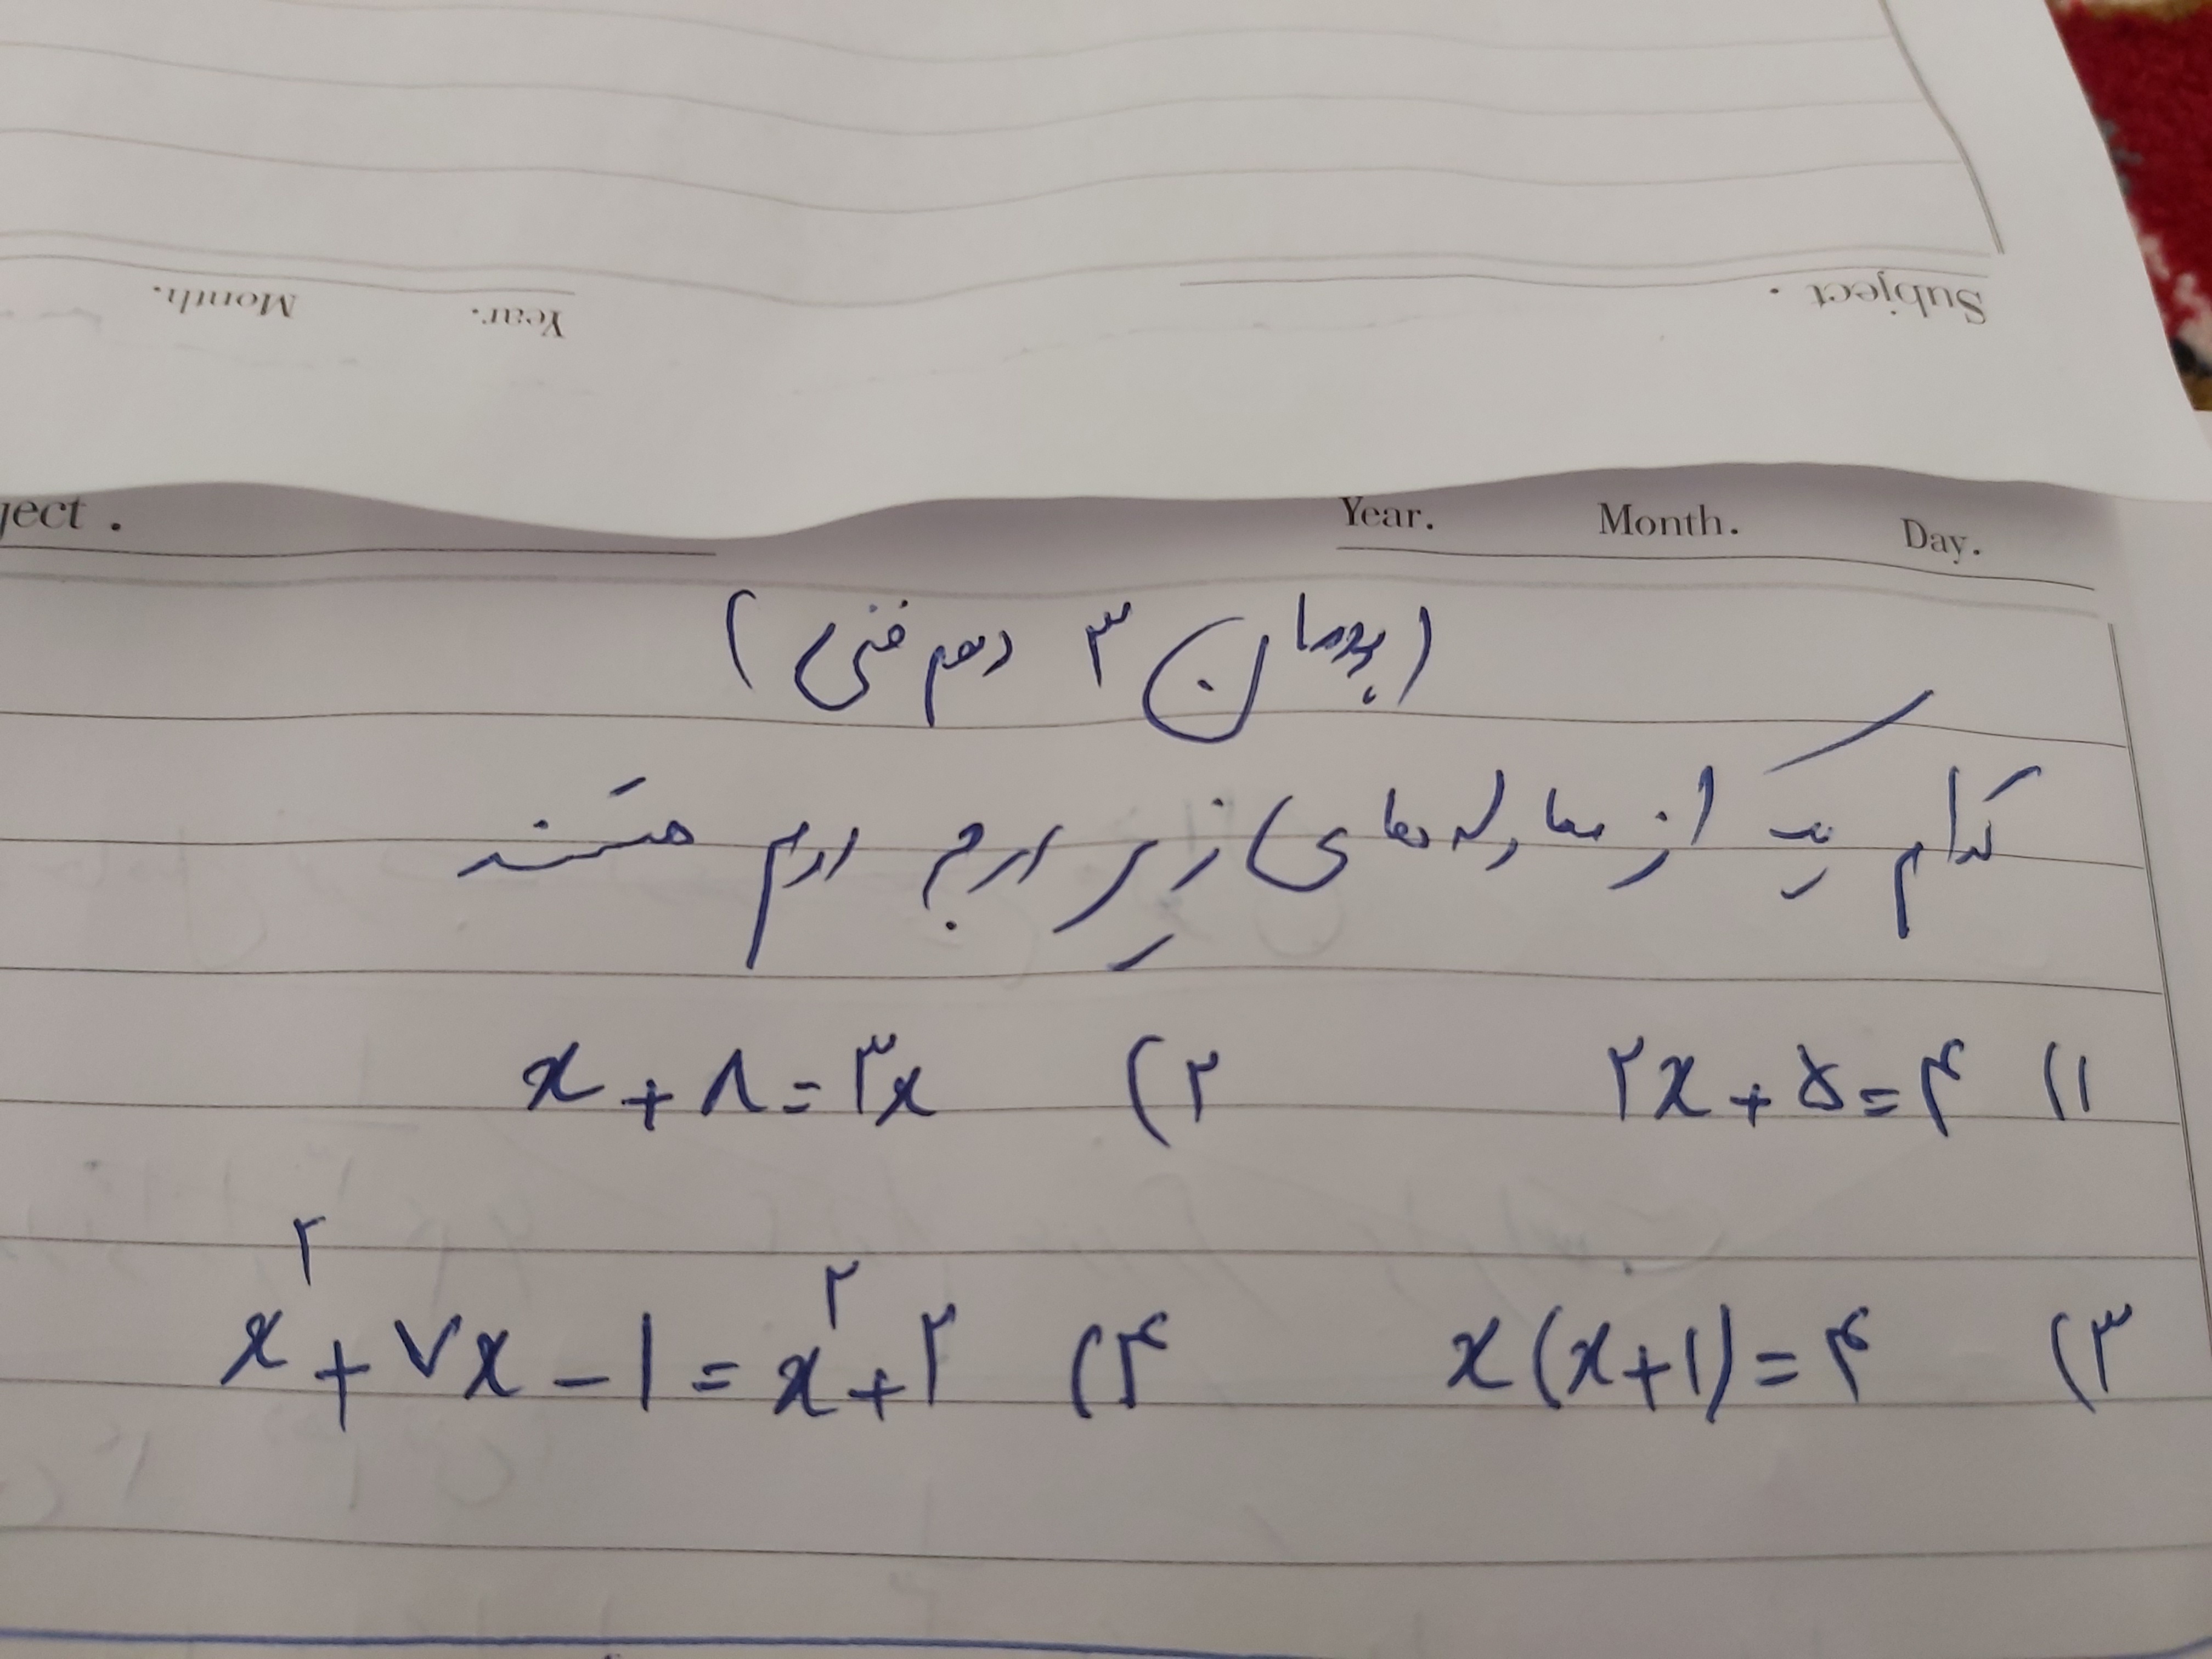 Subject .
Year. Month.
ject . Year. Month. Day.
(پودمان ۳ دهم فنی)
کدام یک از معادله‌های زیر درجه دوم هستند
۱) ۲x + ۵ = ۴ ۲) x + ۸ = ۳x
۳) x(x+۱) = ۴ ۴) x² + ۷x - ۱ = x² + ۲